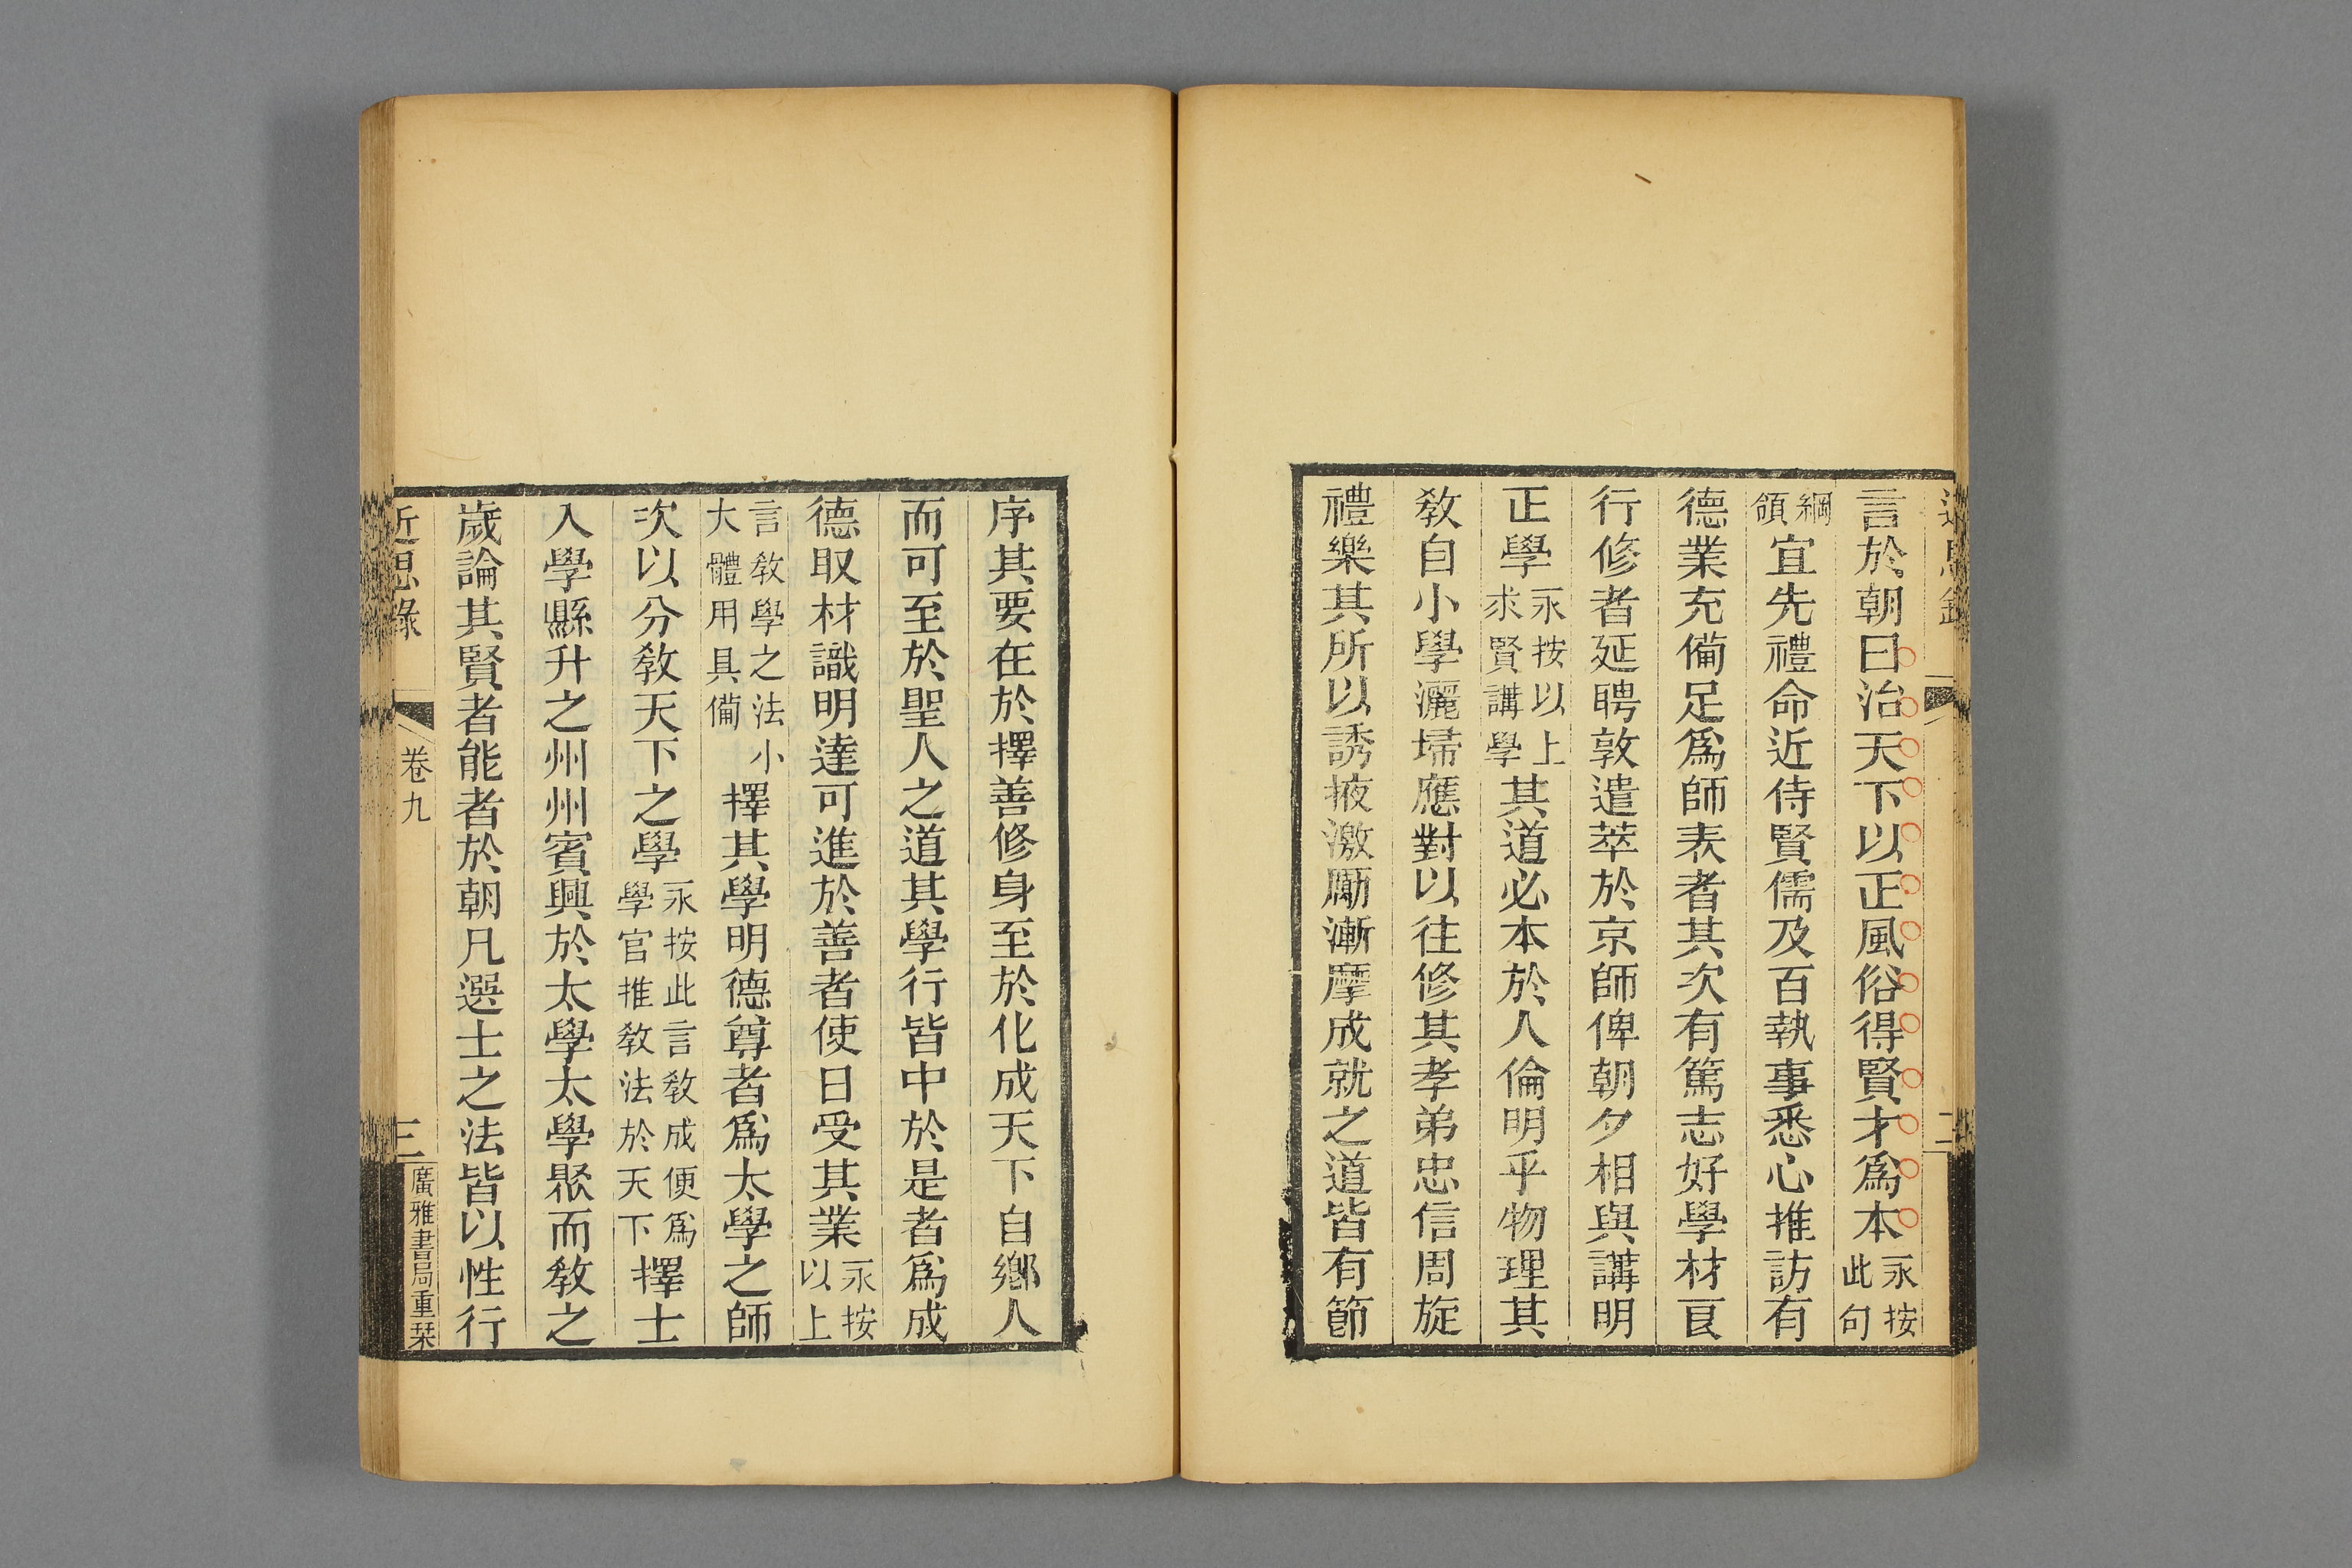 言於朝曰治天下以正風俗得賢才爲本永按此句
綱領宜先禮命近侍賢儒及百執事悉心推訪有
德業充備足爲師表者其次有篤志好學材良
行修者延聘敦遣萃於京師俾朝夕相與講明
正學永按以上求賢講學其道必本於人倫明乎物理其
敎自小學灑埽應對以往修其孝弟忠信周旋
禮樂其所以誘掖激勵漸摩成就之道皆有節
序其要在於擇善修身至於化成天下自鄉人
而可至於聖人之道其學行皆中於是者爲成
德取材識明達可進於善者使日受其業永按以上
言敎學之法小大體用具備擇其學明德尊者爲太學之師
次以分敎天下之學永按此言敎成便爲學官推敎法於天下擇士
入學縣升之州州賓興於太學太學聚而敎之
歲論其賢者能者於朝凡選士之法皆以性行
近思錄
卷九
三
廣雅書局重栞